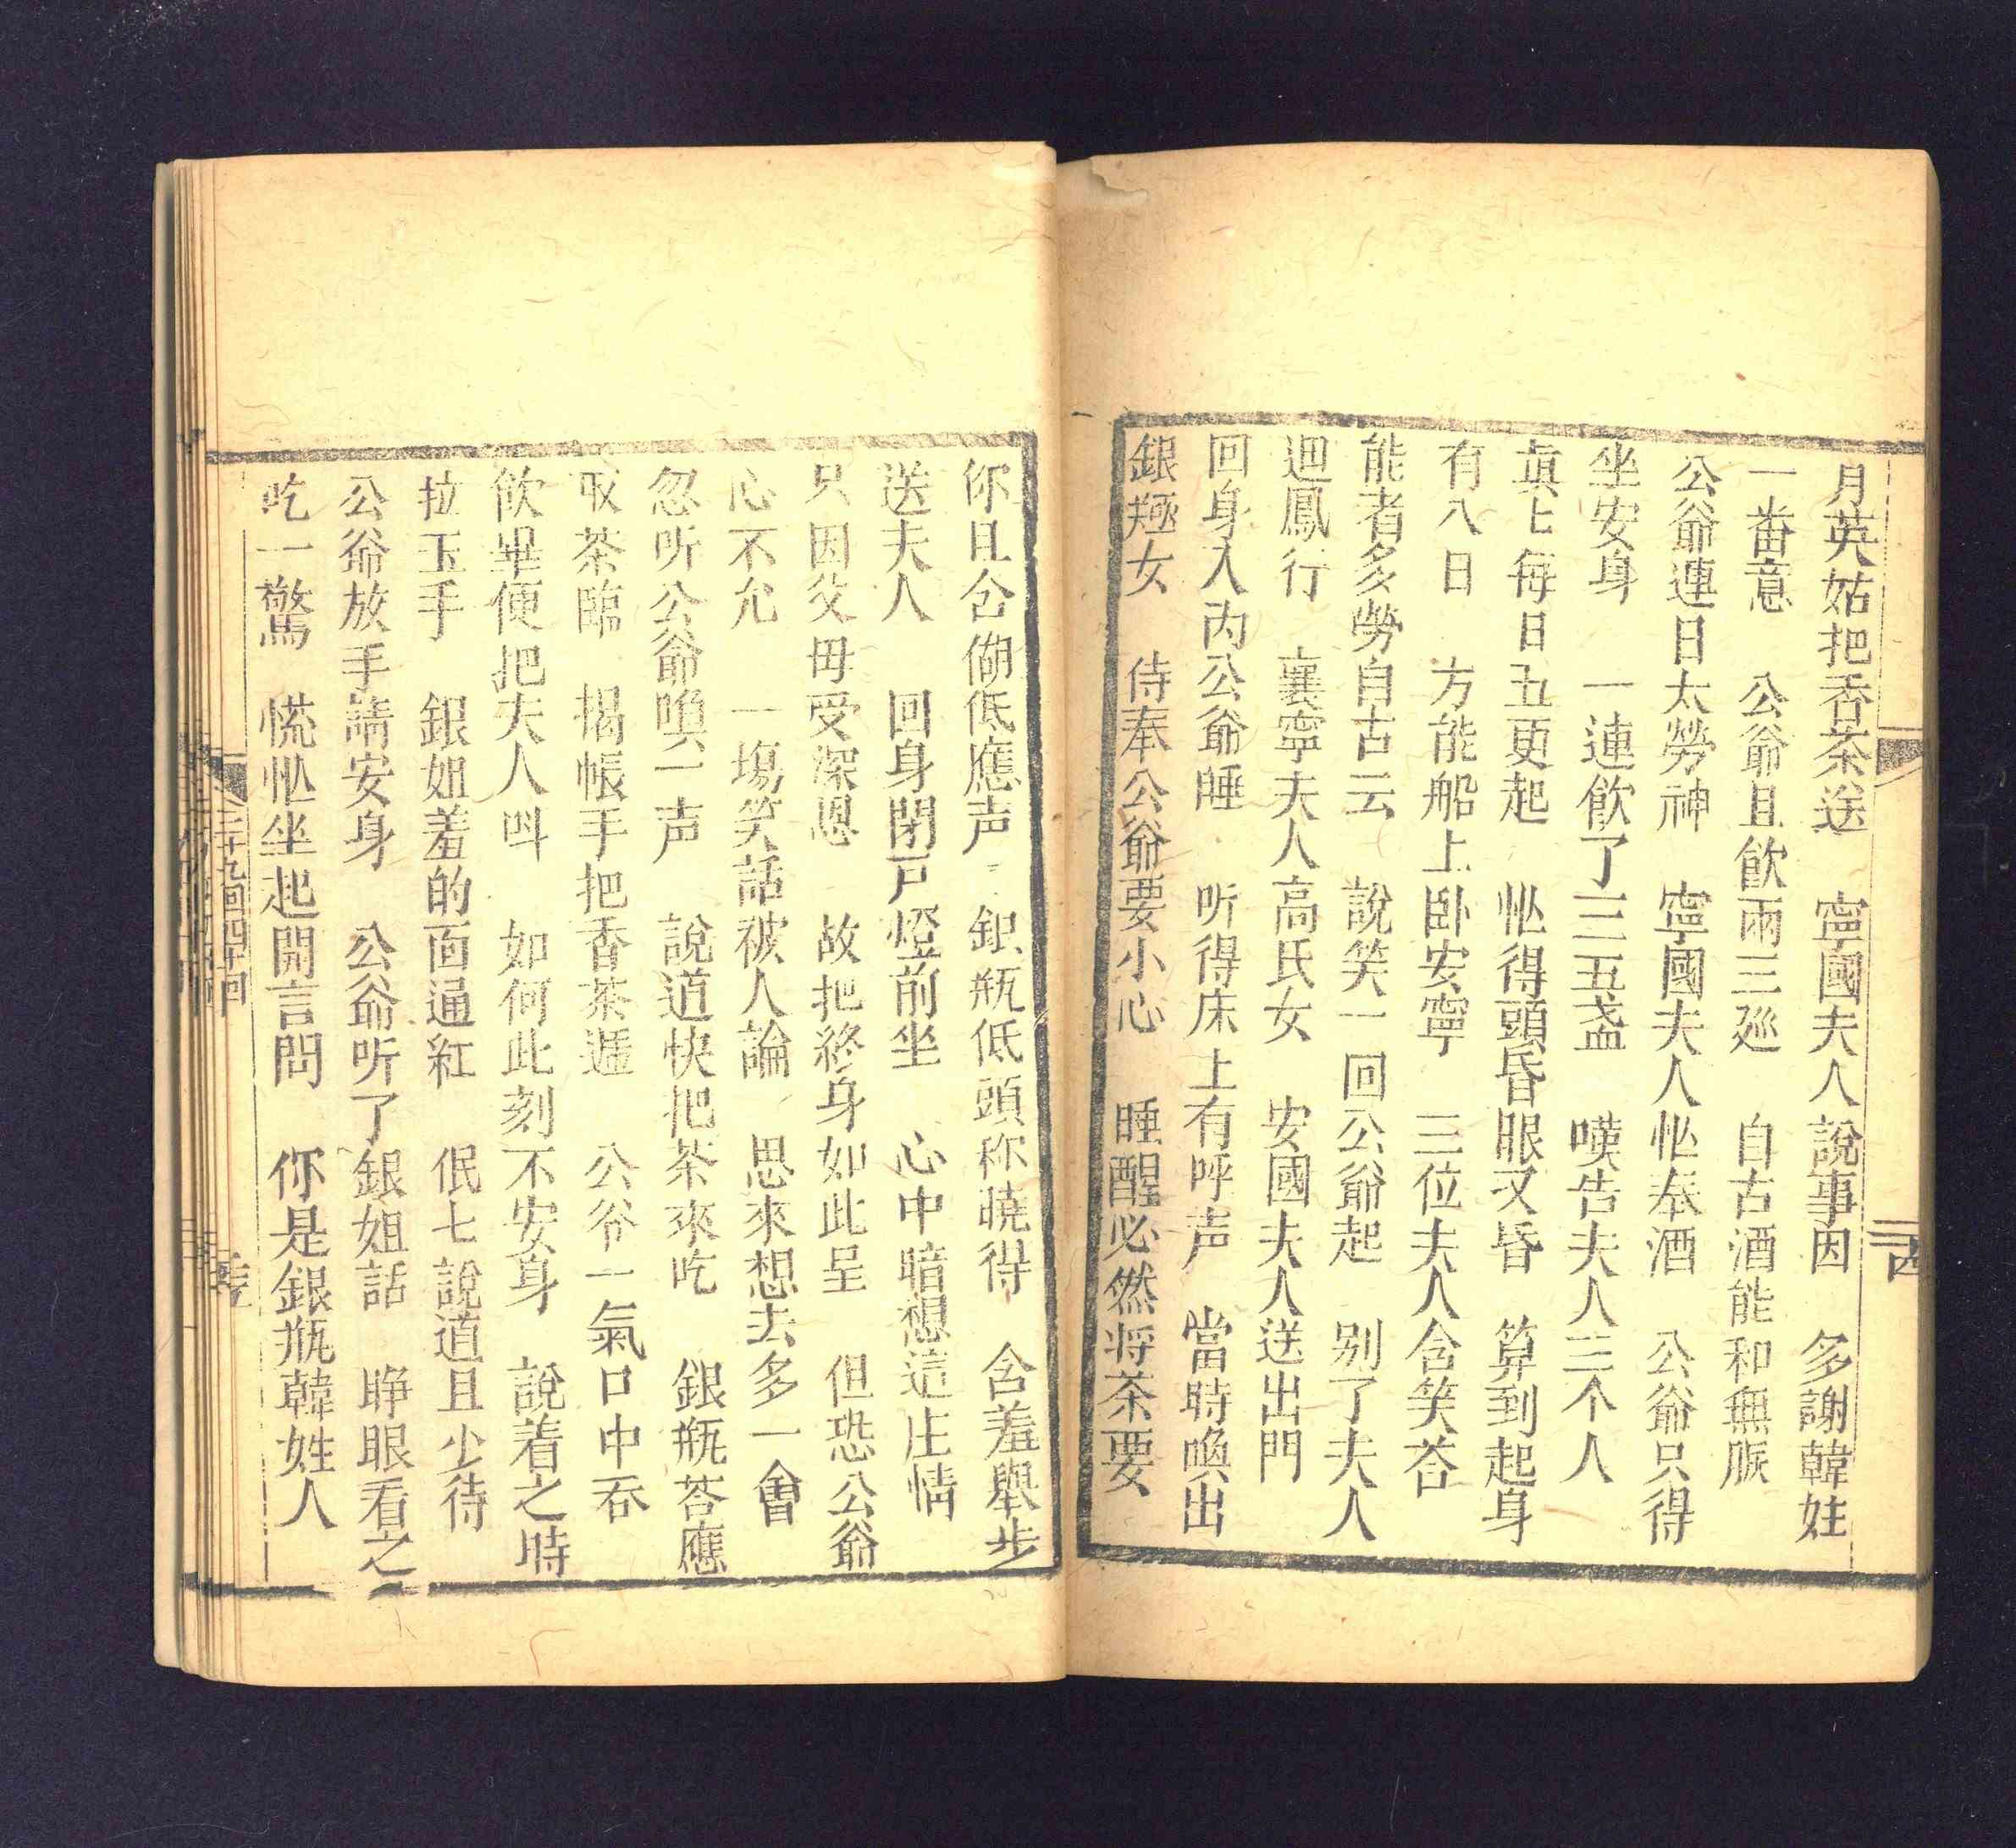 月英姑把香茶送　寧國夫人說事因　多謝韓姓
一畨意　公爺且飮兩三廵　自古酒能和無脤
公爺連日太勞神　寧國夫人忙奉酒　公爺只得
坐安身　一連飮了三五盞　嘆吿夫人三个人
眞七每日五更起　忙得頭昏眼又昏　算到起身
有八日　方能船上卧安寧　三位夫人含笑荅
能者多勞自古云　說笑一回公爺起　别了夫人
迴鳳行　襄寧夫人高氏女　安國夫人送出門
回身入內公爺睡　听得床上有呼声　當時喚出
銀瓶女　侍奉公爺要小心　睡醒必然将茶要
你且仝　低應声　銀瓶低頭称曉得　含羞舉步
送夫人　回身閉戸燈前坐　心中暗想這庄情
只因父毋受深恩　故把終身如此呈　但恐公爺
心不允　一塲笑話被人論　思來想去多一會
忽听公爺喚一声　說道快把茶來吃　銀瓶荅應
取茶臨　揭帳手把香茶遞　公爷一氣口中吞
飮畢便把夫人呌　如何此刻不安身　說着之時
拉玉手　銀姐羞的面通紅　低七說道且少待
公爺放手請安身　公爺听了銀姐話　睁眼看之
吃一驚　慌忙坐起開言問　你是銀瓶韓姓人